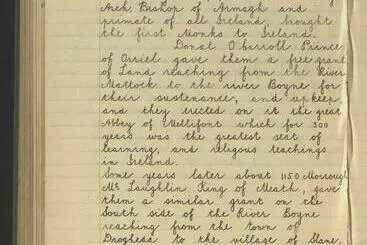 Arch. Bishop of Armagh and
primate of all Ireland, brought
the first Monks to Ireland.
Donal O'Carroll Prince
of Orriel gave them a free grant
of Land reaching from the River
Mattock to the river Boyne for
their sustenance, and upkeep,
and they erected on it the great
Abbey of Mellifont which for 300
years was the greatest seat of
learning, and religous teachings
in Ireland.
Some years later about 1150 Morrough
Mc Laughlin King of Meath, gave
them a similar grant on the
South side of the River Boyne
reaching from the town of
Drogheda to the village of Slane,